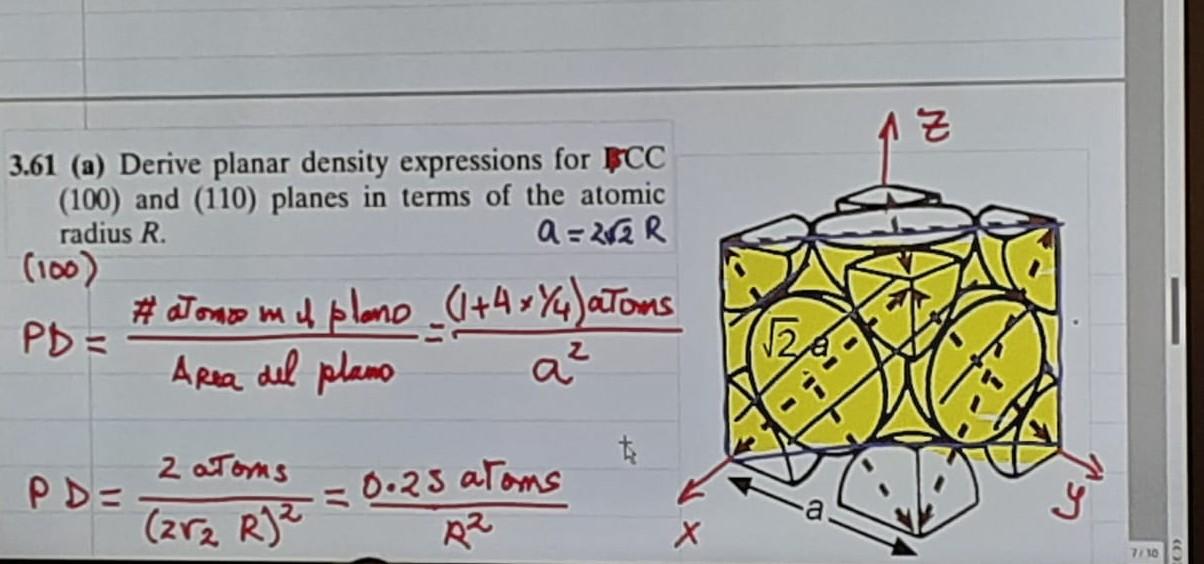 3.61 (a) Derive planar density expressions for FCC
(100) and (110) planes in terms of the atomic
radius R.
a = 2√2 R
(100)
PD = # atomos en el plano / Area del plano = (1+4×1/4) atoms / a²
PD = 2 atoms / (2√2 R)² = 0.25 atoms / R²
z
√2 a
a
x
y
7/10